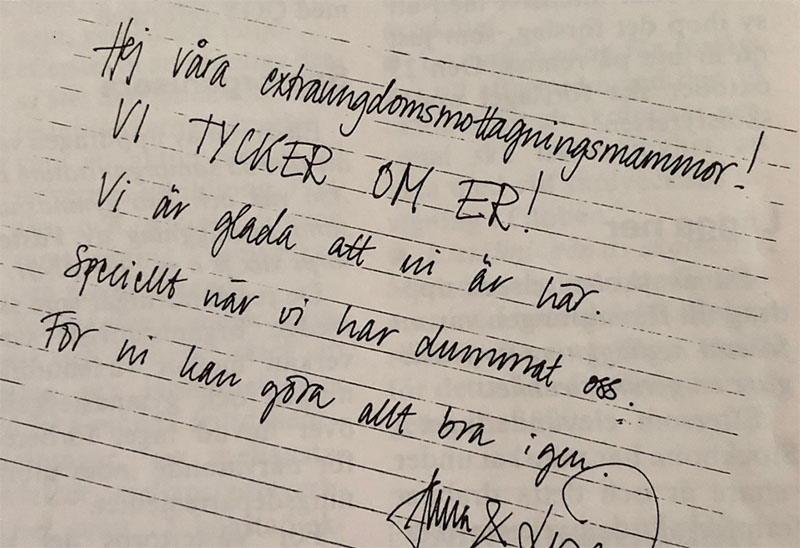 Hej våra extraungdomsmottagningsmammor!
VI TYCKER OM ER!
Vi är glada att ni är här.
Speciellt när vi har dummat oss.
För ni kan göra allt bra igen.
Anna &